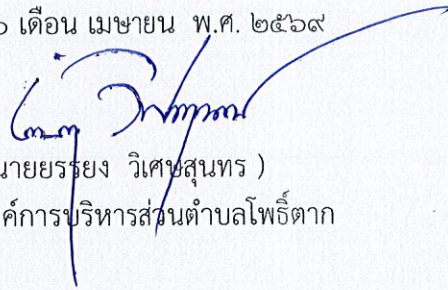 เดือน เมษายน พ.ศ. ๒๕๖๙
นายยรรยง วิเศษสุนทร )
ค์การบริหารส่วนตำบลโพธิ์ตาก